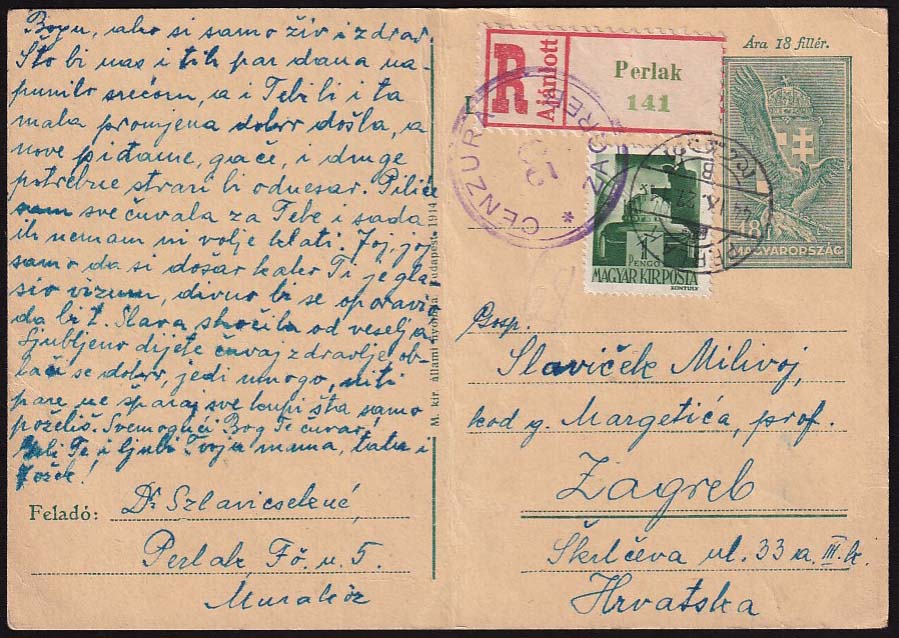 Bogu, ako si samo živ i zdrav.
Što bi nas i tih par dana na-
punilo srećom, a i Tebi li i ta
mala promjena dobro došla, a
nove piđame, gaće, i druge
potrebne stvari bi odnesao. Piliće
sam sve čuvala za Tebe i sada
ih nemam ni volje klati. Joj, joj
samo da si došao kako Ti je gla-
sio vizum, divno bi se oporavio
da bi t. Slava skočila od veselja
Ljubljeno dijete čuvaj zdravlje, ob-
lači se dobro, jedi mnogo, niti
pare ne šparaj sve kupi šta samo
poželiš. Svemogući Bog Te čuvao,
Te i ljubi Tvoja mama, tata i
Feladó: Dr Szlavicsekné,
Perlak Fő. u. 5
Muraköz
M. kir. állami nyomda, Budapest. 1914
R
Ajánlott
Perlak
141
CENZURA ZAGREB *
13
Ára 18 fillér.
18
MAGYARORSZÁG
1
PENGŐ
MAGYAR KIR. POSTA
KONTULY
Gosp.
Slaviček Milivoj,
kod g. Margetića, prof.
Zagreb
Škrlčeva ul. 33 a III. k.
Hrvatska